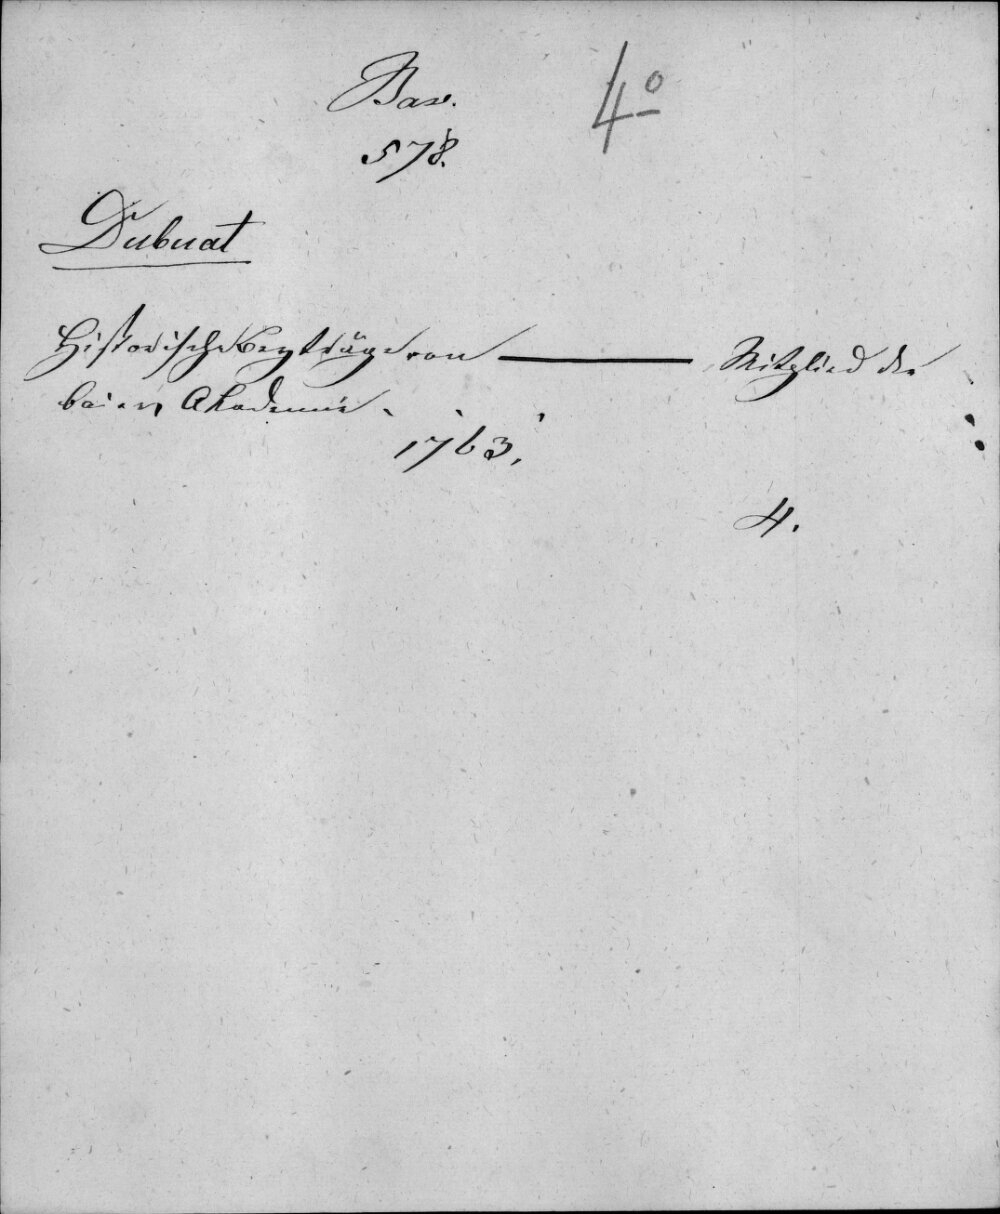 Bav. 4°
578.
Dubuat
Historische Beyträge von — Mitglied der
baiern Akademie.
1763.
4.